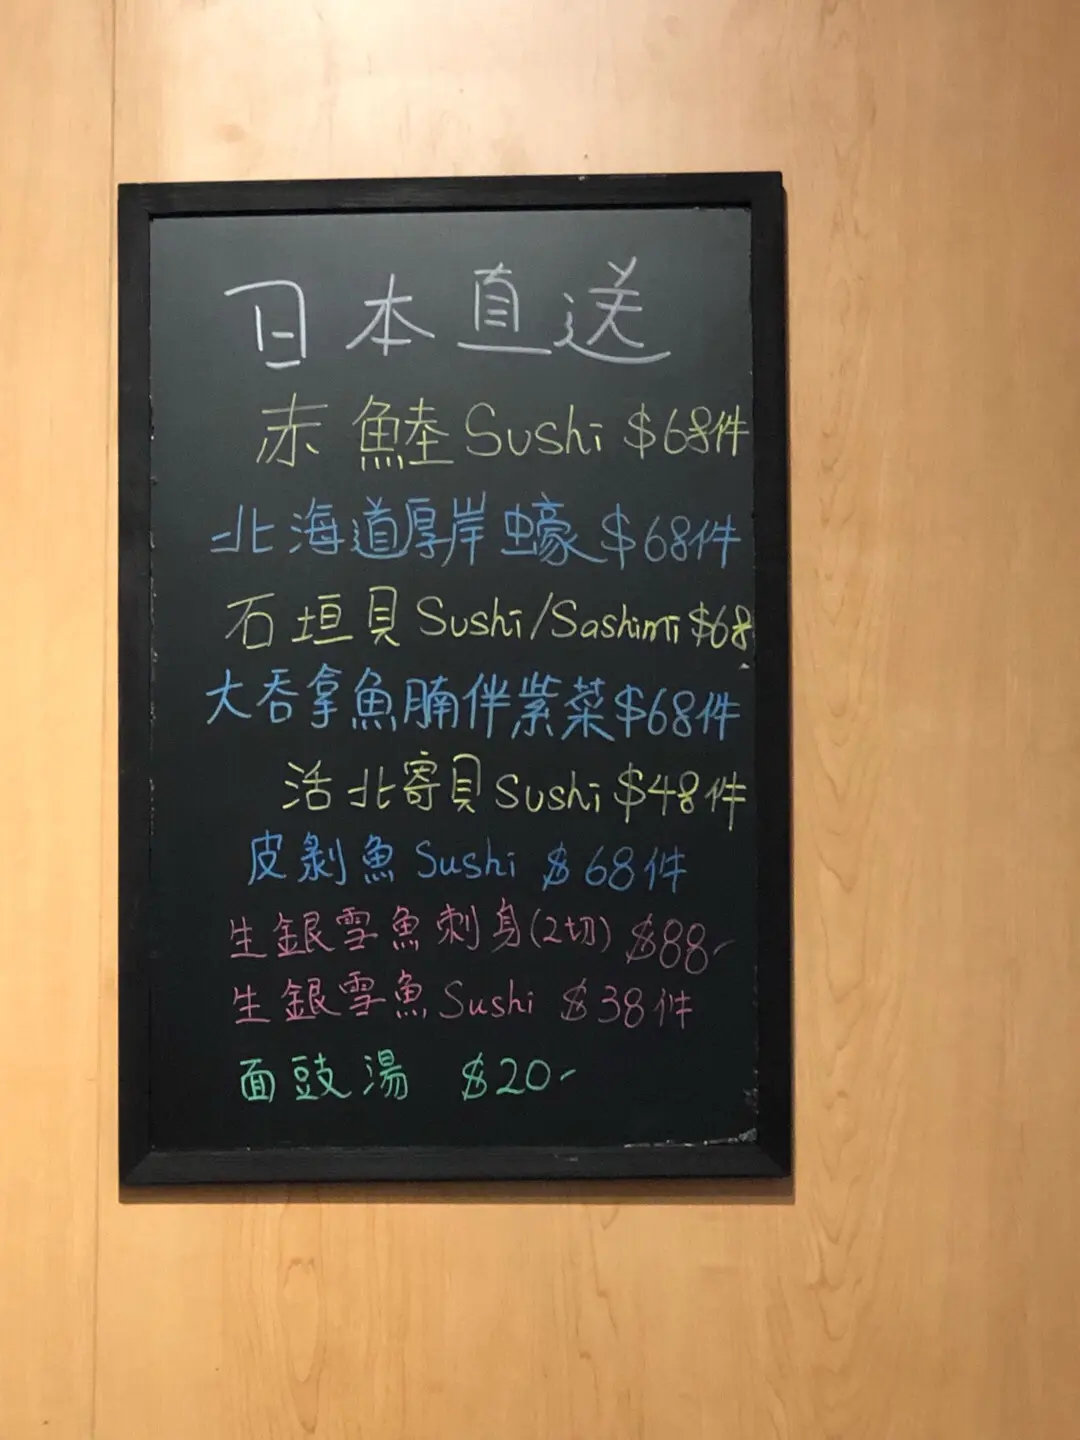 日本直送
赤鯥 Sushi $68件
北海道厚岸蠔 $68件
石垣貝 Sushi/Sashimi $68
大吞拿魚腩伴紫菜 $68件
活北寄貝 Sushi $48件
皮剝魚 Sushi $68件
生銀雪魚刺身(2切) $88-
生銀雪魚 Sushi $38件
面豉湯 $20-